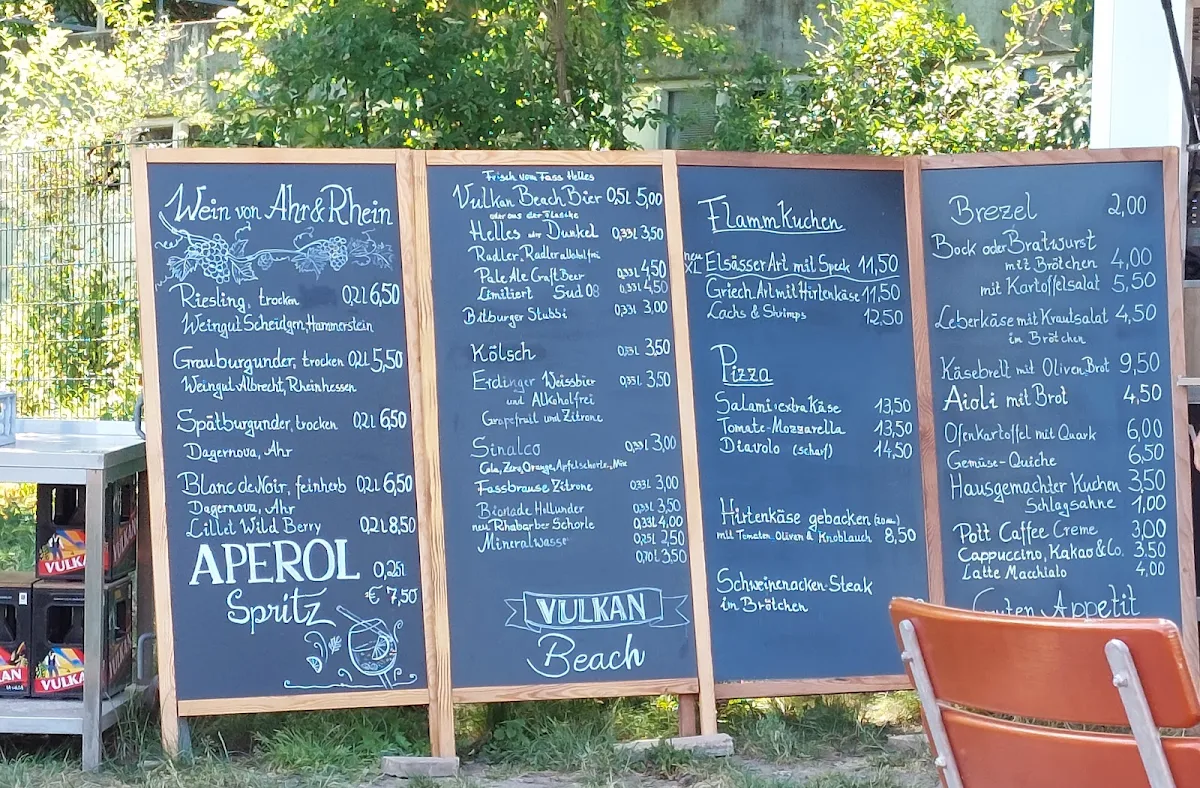 Wein von Ahr & Rhein
Riesling, trocken 0,2 l 6,50
Weingut Scheidgen, Hammerstein
Grauburgunder, trocken 0,2 l 5,50
Weingut Albrecht, Rheinhessen
Spätburgunder, trocken 0,2 l 6,50
Dagernova, Ahr
Blanc de Noir, feinherb 0,2 l 6,50
Dagernova, Ahr
Lillet Wild Berry 0,2 l 8,50
APEROL 0,25 l
Spritz € 7,50
Frisch vom Fass Helles
Vulkan Beach Bier 0,5 l 5,00
oder aus der Flasche
Helles oder Dunkel 0,33 l 3,50
Radler, Radler alkoholfrei
Pale Ale Craft Beer 0,33 l 4,50
Limitiert Sud 08 0,33 l 4,50
Bitburger Stubbi 0,33 l 3,00
Kölsch 0,33 l 3,50
Erdinger Weissbier 0,33 l 3,50
und Alkoholfrei
Grapefruit und Zitrone
Sinalco 0,33 l 3,00
Cola, Zero, Orange, Apfelschorle, Mix
Fassbrause Zitrone 0,33 l 3,00
Bionade Hollunder 0,33 l 3,50
neu Rhabarber Schorle 0,33 l 4,00
Mineralwasser 0,25 l 2,50
0,70 l 3,50
VULKAN
Beach
FlammKuchen
neu
XL Elsässer Art mit Speck 11,50
Griech. Art mit Hirtenkäse 11,50
Lachs & Shrimps 12,50
Pizza
Salami + extra Käse 13,50
Tomate-Mozzarella 13,50
Diavolo (scharf) 14,50
Hirtenkäse gebacken
mit Tomaten Oliven & Knoblauch 8,50
Schweinenacken-Steak
im Brötchen
Brezel 2,00
Bock oder Bratwurst
mit Brötchen 4,00
mit Kartoffelsalat 5,50
Leberkäse mit Krautsalat 4,50
im Brötchen
Käsebrett mit Oliven Brot 9,50
Aioli mit Brot 4,50
Ofenkartoffel mit Quark 6,00
Gemüse-Quiche 6,50
Hausgemachter Kuchen 3,50
Schlagsahne 1,00
Pott Caffee Creme 3,00
Cappuccino, Kakao & Co. 3,50
Latte Macchiato 4,00
Guten Appetit
VULKAN
VULKAN
VULKAN